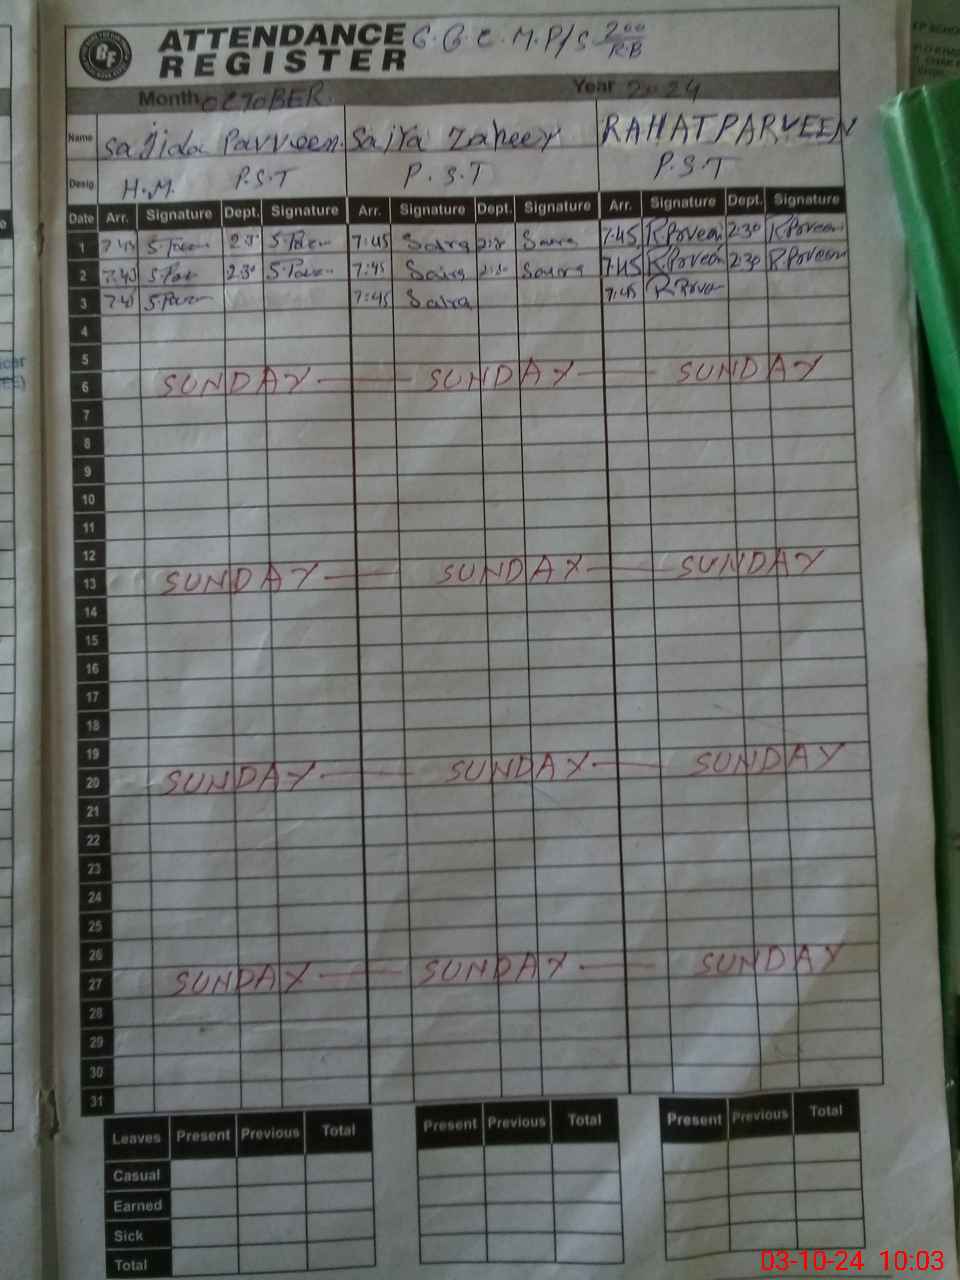 ATTENDANCE G.G.C.M.P/S 200/R.B
REGISTER
Month OCTOBER. Year 2024
Name Sajida Parveen. Saira Zaheer RAHAT PARVEEN
Desig. H.M. P.S.T P.S.T P.S.T
Date Arr. Signature Dept. Signature Arr. Signature Dept. Signature Arr. Signature Dept. Signature
1 7:45 7:45 Saira Saira 7:45 R Parveen 2:30 R Parveen
2 2:30 7:45 Saira Saira 7:45 R Parveen 2:30 R Parveen
3 7:45 Saira 7:45
4
5
6 SUNDAY SUNDAY SUNDAY
7
8
9
10
11
12
13 SUNDAY SUNDAY SUNDAY
14
15
16
17
18
19
20 SUNDAY SUNDAY SUNDAY
21
22
23
24
25
26
27 SUNDAY SUNDAY SUNDAY
28
29
30
31
Leaves Present Previous Total Present Previous Total Present Previous Total
Casual
Earned
Sick
Total
03-10-24 10:03